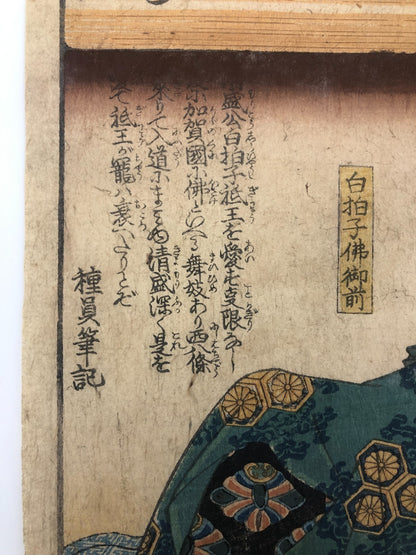 白拍子佛御前
盛公白拍子祇王を愛する支限なし
加賀國に佛といへる舞妓あり西八條
來りて入道にまみへ清盛深く是を
祇王が寵ハ衰へたりとぞ
種員筆記